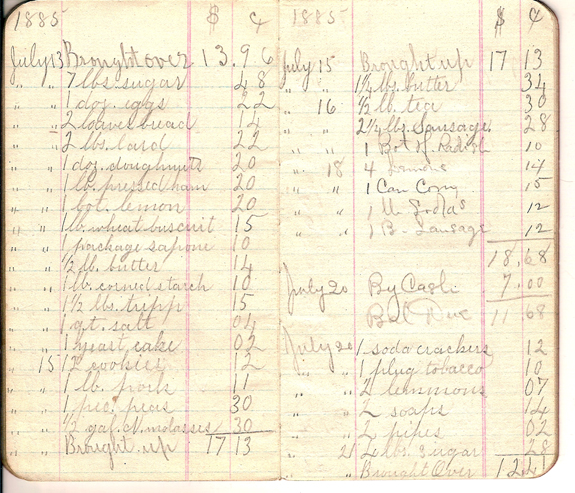 1885 $ ¢
July 13 Brought over 13.96
" " 7 lbs. sugar 48
" " 1 doz. eggs 22
" " 2 loaves bread 14
" " 2 lbs. lard 22
" " 1 doz. doughnuts 20
" " 1 lb. pressed ham 20
" " 1 bot. lemon 20
" " 1 lb. wheat buscuit 15
" " 1 package sapone 10
" " 1/2 lb. butter 14
" " 1 lb. corned starch 10
" " 1 1/2 lbs. tripp 15
" " 1 qt. salt 04
" " 1 yeast cake 02
" 15 12 cookies 12
" " 1 lb. pork 11
" " 1 pec. peas 30
" " 1/2 gal. N. molasses 30
" " Brought up 17 13
1885 $ ¢
July 15 Brought up 17 13
" " 1 1/4 lb. butter 34
" 16 1/2 lb. tea 30
" " 2 1/4 lbs. Sausage 28
" " 1 Bot of 10
" 18 4 Lemons 14
" " 1 Can Corn 15
" " 1 lb. Soda's 12
" " 1 B. Sausage 12
18.68
July 20 By Cash 7.00
Bal Due 11 68
July 20 1 soda crackers 12
" " 1 plug tobacco 10
" " 2 lemmons 07
" " 2 soaps 14
" " 2 pipes 02
" 21 4 lbs. sugar 28
" Brought Over 12.41